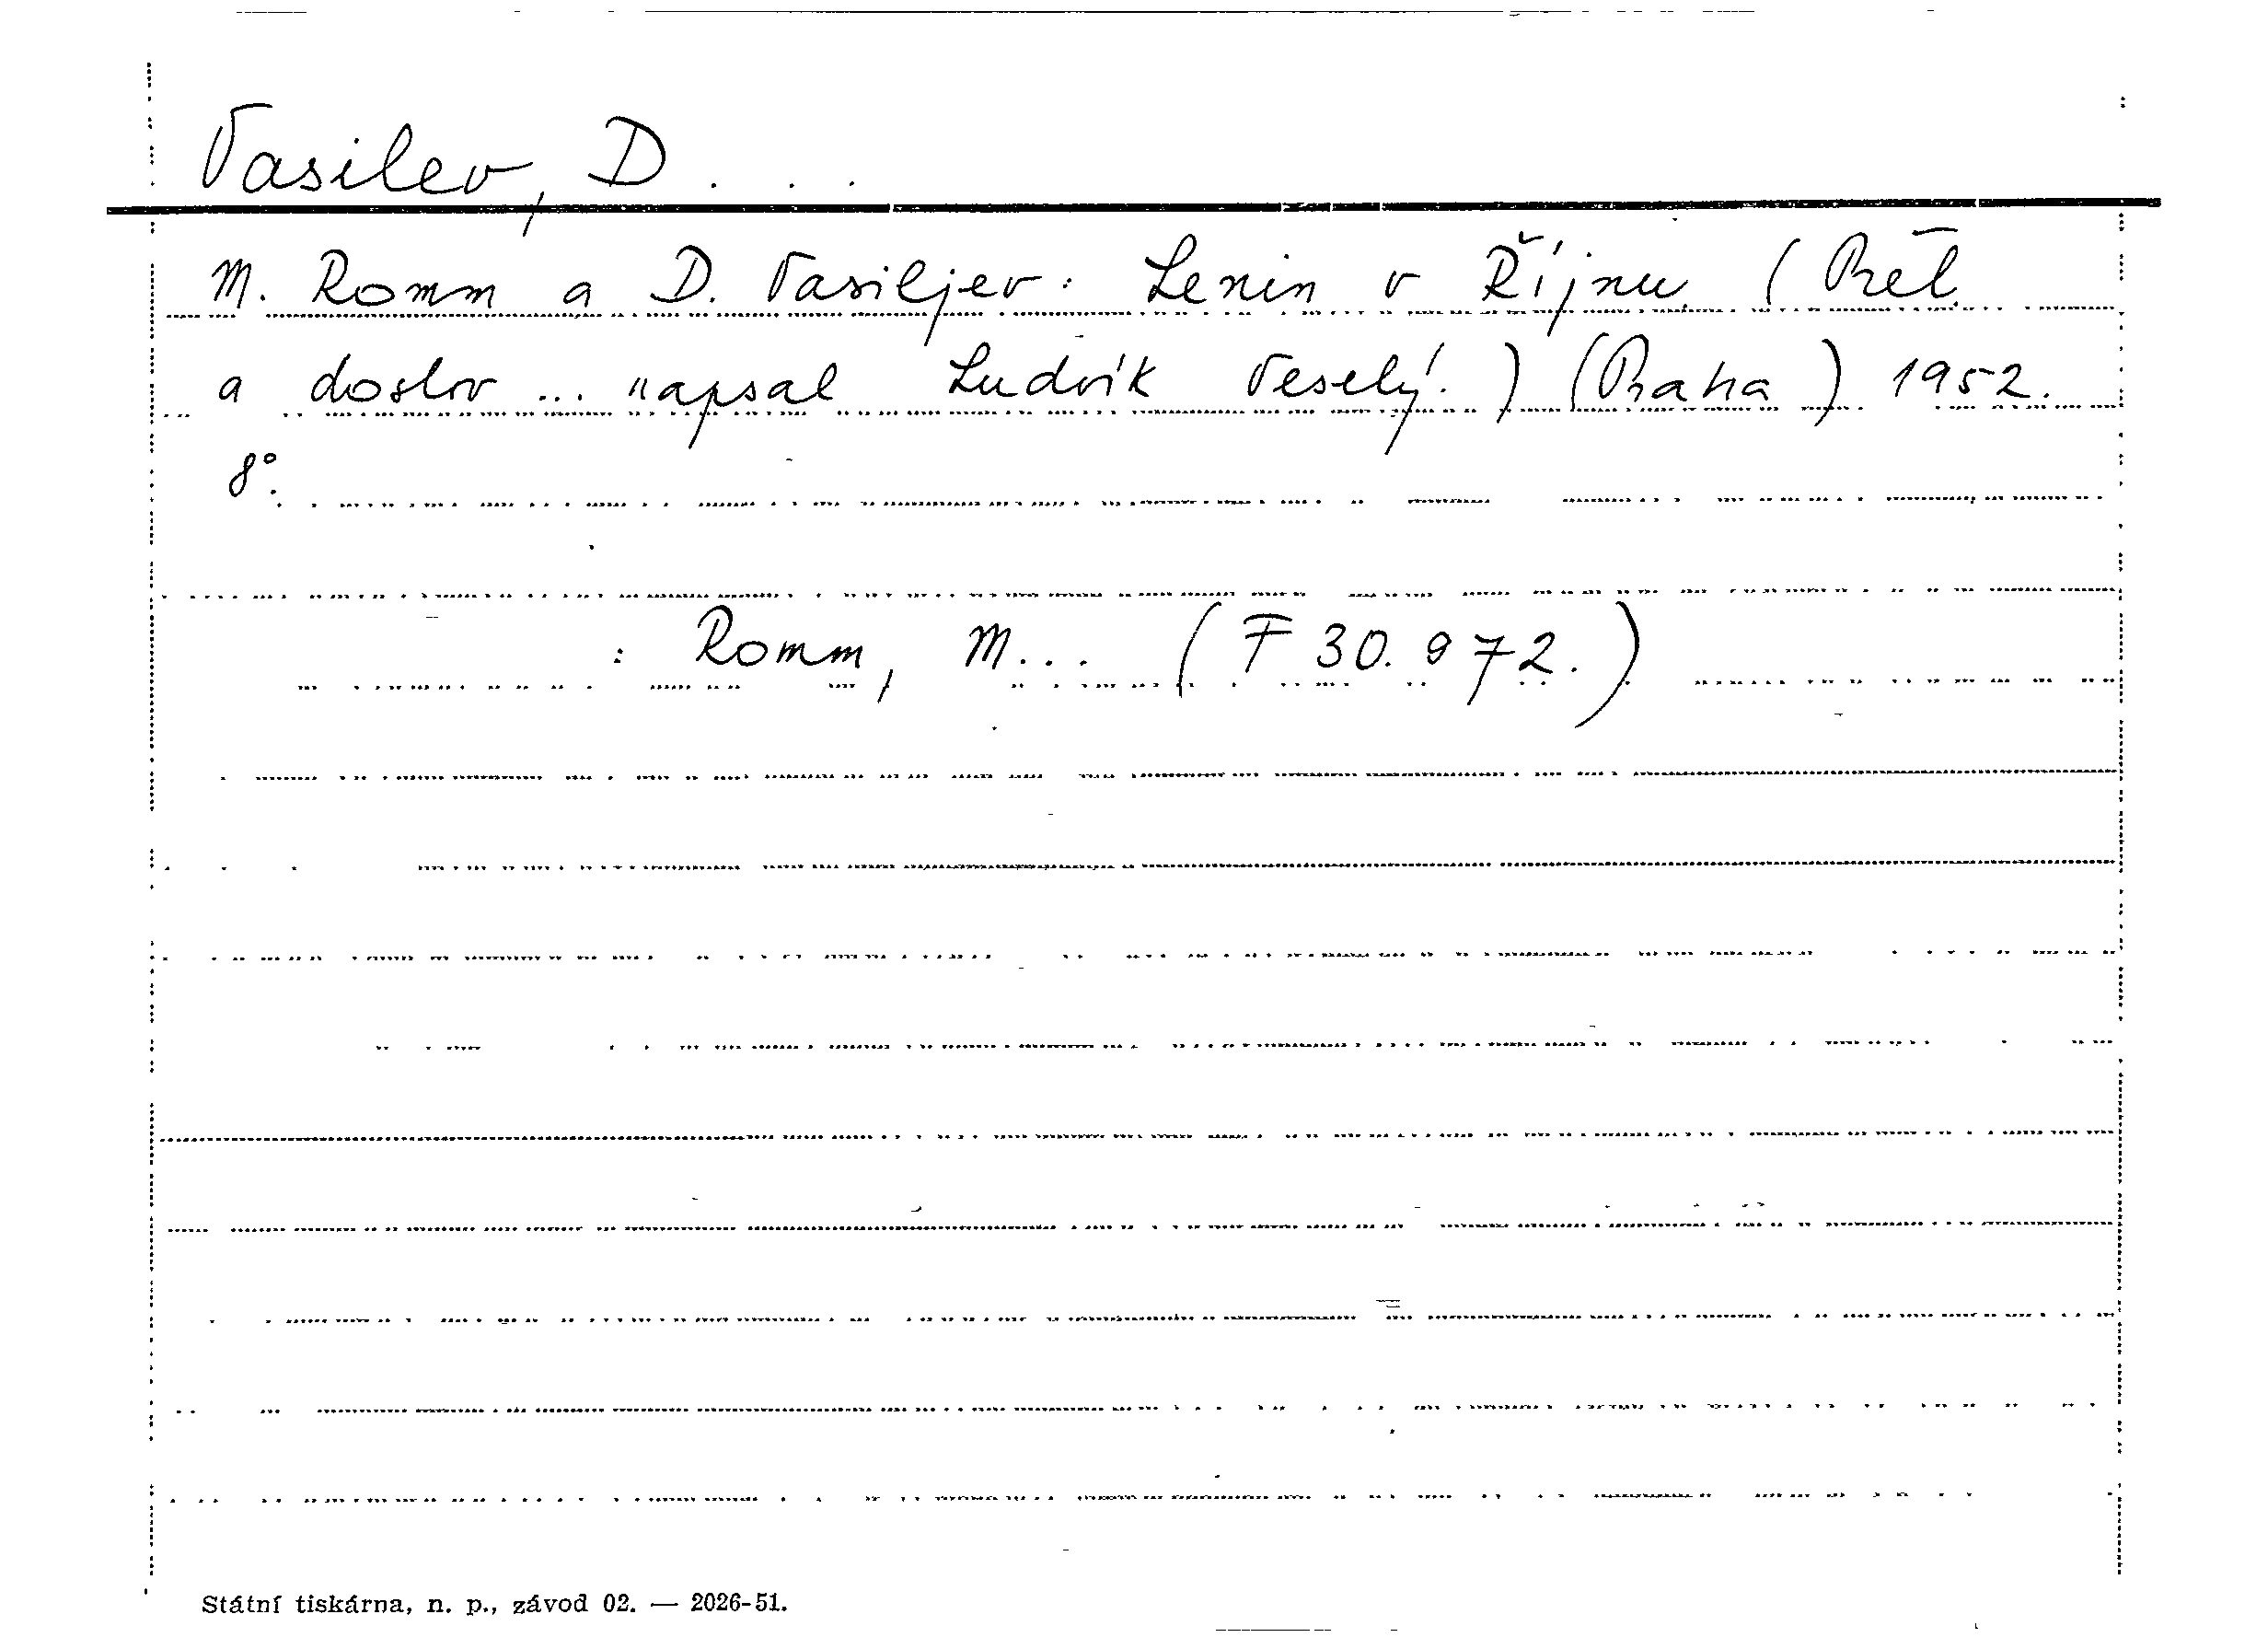 Vasilev, D...
M. Romm a D. Vasiljev: Lenin v Říjnu. (Přel.
a doslov ... napsal Ludvík Veselý.) (Praha) 1952.
8°.
: Romm, M... (F 30.972.)
Státní tiskárna, n. p., závod 02. — 2026-51.